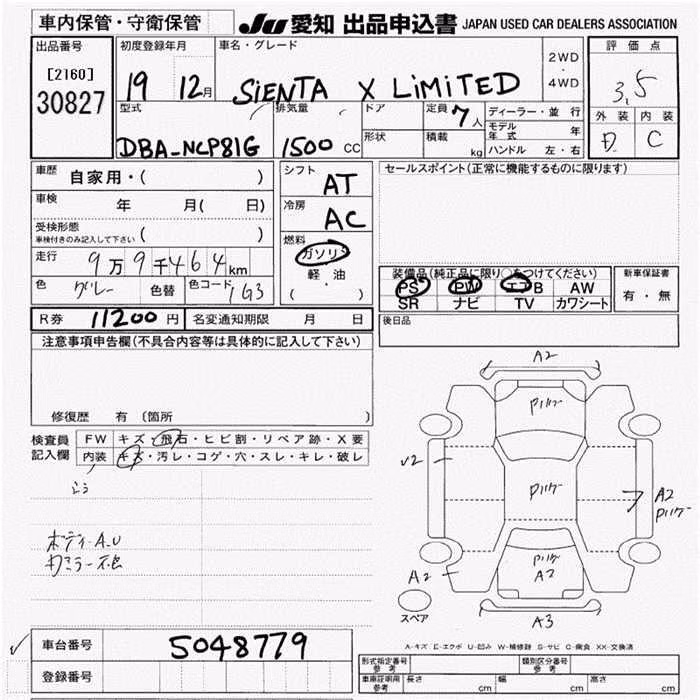 車内保管・守衛保管 JU 愛知 出品申込書 JAPAN USED CAR DEALERS ASSOCIATION
出品番号 初度登録年月 車名・グレード 評価点
[2160] 2WD
30827 19 12月 SiENTA X LiMiTED 4WD 3.5
型式 排気量 ドア 定員 7人 ディーラー・並行 外装 内装
モデル年式 年
DBA-NCP81G 1500 CC 形状 積載 kg ハンドル 左・右 D C
車歴 自家用・( ) シフト AT セールスポイント(正常に機能するものに限ります)
車検 年 月( 日) 冷房 AC
受検形態 ( )
車検付きのみ記入して下さい
燃料
走行 9万9千464km ガソリン 装備品(純正品に限り○をつけてください) 新車保証書
色 グレー 色替 色コード 1G3 軽・油 PS PW エアB AW 有・無
( ・ ) SR ナビ TV カワシート
R券 11200円 名変通知期限 月 日 後日品
注意事項申告欄(不具合内容等は具体的に記入して下さい)
修復歴 有 (箇所 )
検査員 FW キズ・飛石・ヒビ割・リペア跡・X要
記入欄 内装 キズ・汚レ・コゲ・穴・スレ・キレ・破レ
ボディーA.U
A2
Pハゲ
U2
Pハゲ
A2
Pハゲ
Pハゲ
A2
A2
A3
スペア
A-キズ E-エクボ U-凹み W-補修跡 S-サビ C-腐食 XX-交換済
車台番号 5048779
登録番号
型式指定番号 参考 類別区分番号 参考
車庫証明用 参考 長さ cm 幅 cm 高さ cm